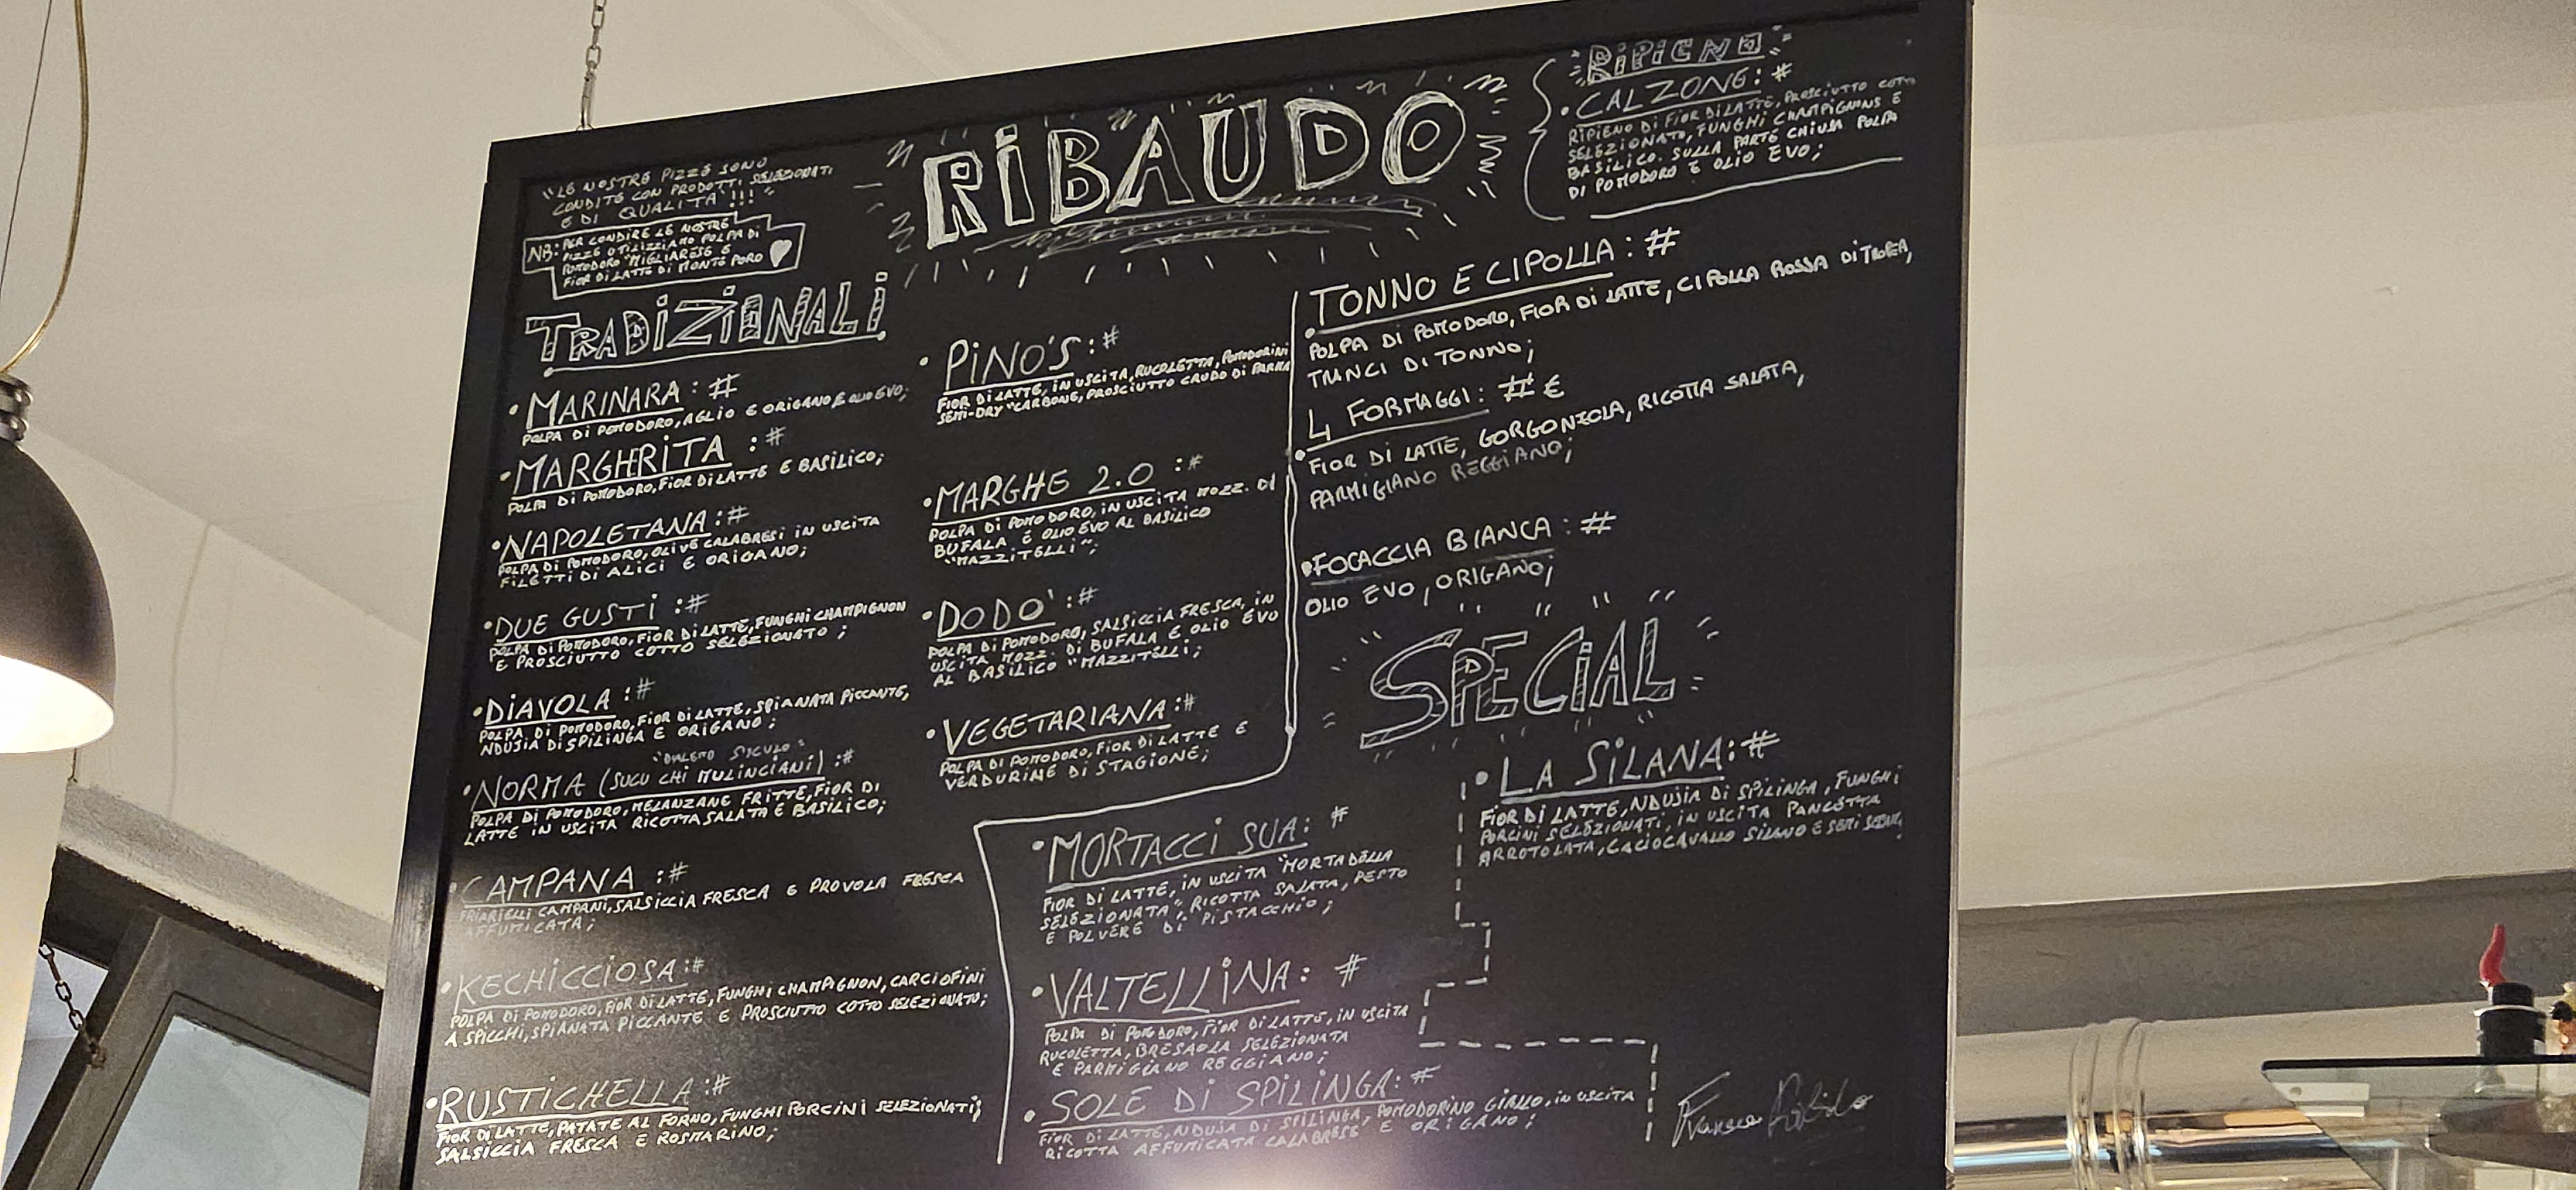 "LE NOSTRE PIZZE SONO
CONDITE CON PRODOTTI SELEZIONATI
E DI QUALITA'!!!"
NB: PER CONDIRE LE NOSTRE
PIZZE UTILIZZIAMO POLPA DI
POMODORO "MIGLIARESE E
FIOR DI LATTE DI MONTE PORO
RIBAUDO
TRADIZIONALI
• MARINARA: #
POLPA DI POMODORO, AGLIO E ORIGANO E OLIO EVO;
• MARGHERITA : #
POLPA DI POMODORO, FIOR DI LATTE E BASILICO;
• NAPOLETANA: #
POLPA DI POMODORO, OLIVE CALABRESI IN USCITA
FILETTI DI ALICI E ORIGANO;
• DUE GUSTI : #
POLPA DI POMODORO, FIOR DI LATTE, FUNGHI CHAMPIGNON
E PROSCIUTTO COTTO SELEZIONATO;
• DIAVOLA : #
POLPA DI POMODORO, FIOR DI LATTE, SPIANATA PICCANTE,
NDUJIA DI SPILINGA E ORIGANO;
"DIALETTO SICULO"
• NORMA (SUCU CHI MULINCIANI) : #
POLPA DI POMODORO, MELANZANE FRITTE, FIOR DI
LATTE IN USCITA RICOTTA SALATA E BASILICO;
• CAMPANA : #
FRIARIELLI CAMPANI, SALSICCIA FRESCA E PROVOLA FRESCA
AFFUMICATA;
• KECHICCIOSA: #
POLPA DI POMODORO, FIOR DI LATTE, FUNGHI CHAMPIGNON, CARCIOFINI
A SPICCHI, SPIANATA PICCANTE E PROSCIUTTO COTTO SELEZIONATO;
• RUSTICHELLA: #
FIOR DI LATTE, PATATE AL FORNO, FUNGHI PORCINI SELEZIONATI,
SALSICCIA FRESCA E ROSMARINO;
• PINO'S: #
FIOR DI LATTE, IN USCITA, RUCOLETTA, POMODORINI
SEMI-DRY "CARBONE, PROSCIUTTO CRUDO DI PARMA
• MARGHE 2.0 : #
POLPA DI POMODORO, IN USCITA MOZZ. DI
BUFALA E OLIO EVO AL BASILICO
"MAZZITELLI";
• DODO' : #
POLPA DI POMODORO, SALSICCIA FRESCA, IN
USCITA MOZZ. DI BUFALA E OLIO EVO
AL BASILICO "MAZZITELLI;
• VEGETARIANA: #
POLPA DI POMODORO, FIOR DI LATTE E
VERDURINE DI STAGIONE;
• MORTACCI SUA: #
FIOR DI LATTE, IN USCITA "MORTADELLA
SELEZIONATA", RICOTTA SALATA, PESTO
E POLVERE DI PISTACCHIO;
• VALTELLINA: #
POLPA DI POMODORO, FIOR DI LATTE, IN USCITA
RUCOLETTA, BRESAOLA SELEZIONATA
E PARMIGIANO REGGIANO;
• SOLE DI SPILINGA: #
FIOR DI LATTE, NDUJA DI SPILINGA, POMODORINO GIALLO, IN USCITA
RICOTTA AFFUMICATA CALABRESE E ORIGANO;
RIPIENO
• CALZONE: #
RIPIENO DI FIOR DI LATTE, PROSCIUTTO COTTO
SELEZIONATO, FUNGHI CHAMPIGNONS E
BASILICO. SULLA PARTE CHIUSA POLPA
DI POMODORO E OLIO EVO;
• TONNO E CIPOLLA: #
POLPA DI POMODORO, FIOR DI LATTE, CIPOLLA ROSSA DI TROPEA,
TRANCI DI TONNO;
• 4 FORMAGGI: # €
FIOR DI LATTE, GORGONZOLA, RICOTTA SALATA,
PARMIGIANO REGGIANO;
• FOCACCIA BIANCA: #
OLIO EVO, ORIGANO;
SPECIAL
• LA SILANA: #
FIOR DI LATTE, NDUJIA DI SPILINGA, FUNGHI
PORCINI SELEZIONATI, IN USCITA PANCETTA
ARROTOLATA, CACIOCAVALLO SILANO E SEMI